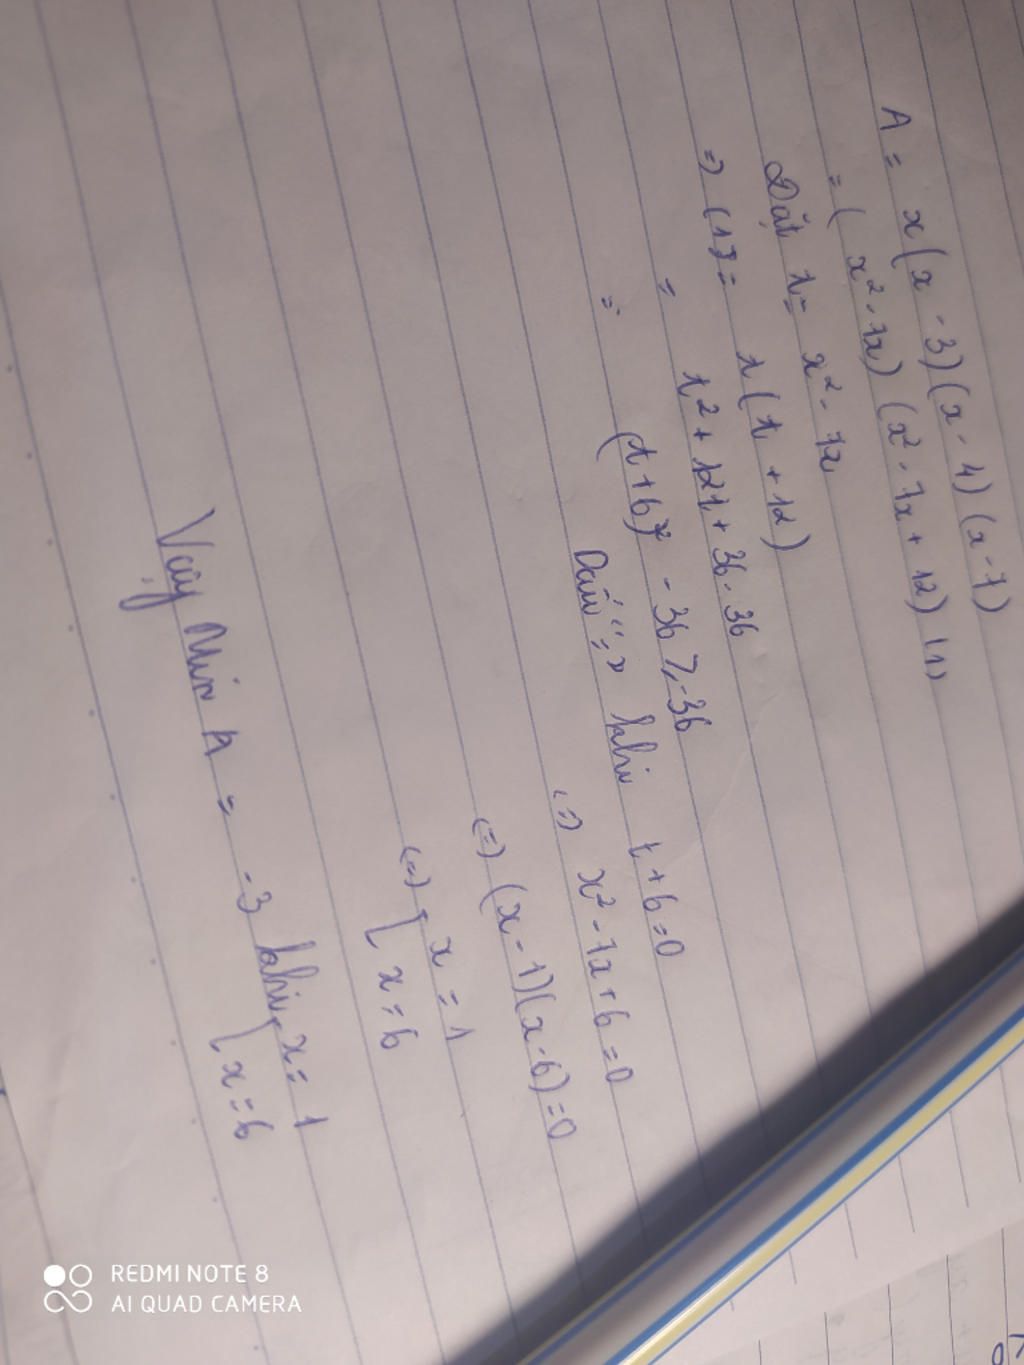 A = x(x - 3)(x - 4)(x - 7)
= (x² - 7x)(x² - 7x + 12) (1)
Đặt t = x² - 7x
=> (1) = t(t + 12)
= t² + 12t + 36 - 36
= (t + 6)² - 36 ≥ -36
Dấu "=" khi t + 6 = 0
(=) x² - 7x + 6 = 0
(=) (x - 1)(x - 6) = 0
(=) [ x = 1
x = 6
Vậy Min A = -3 khi [ x = 1
x = 6
REDMI NOTE 8
AI QUAD CAMERA